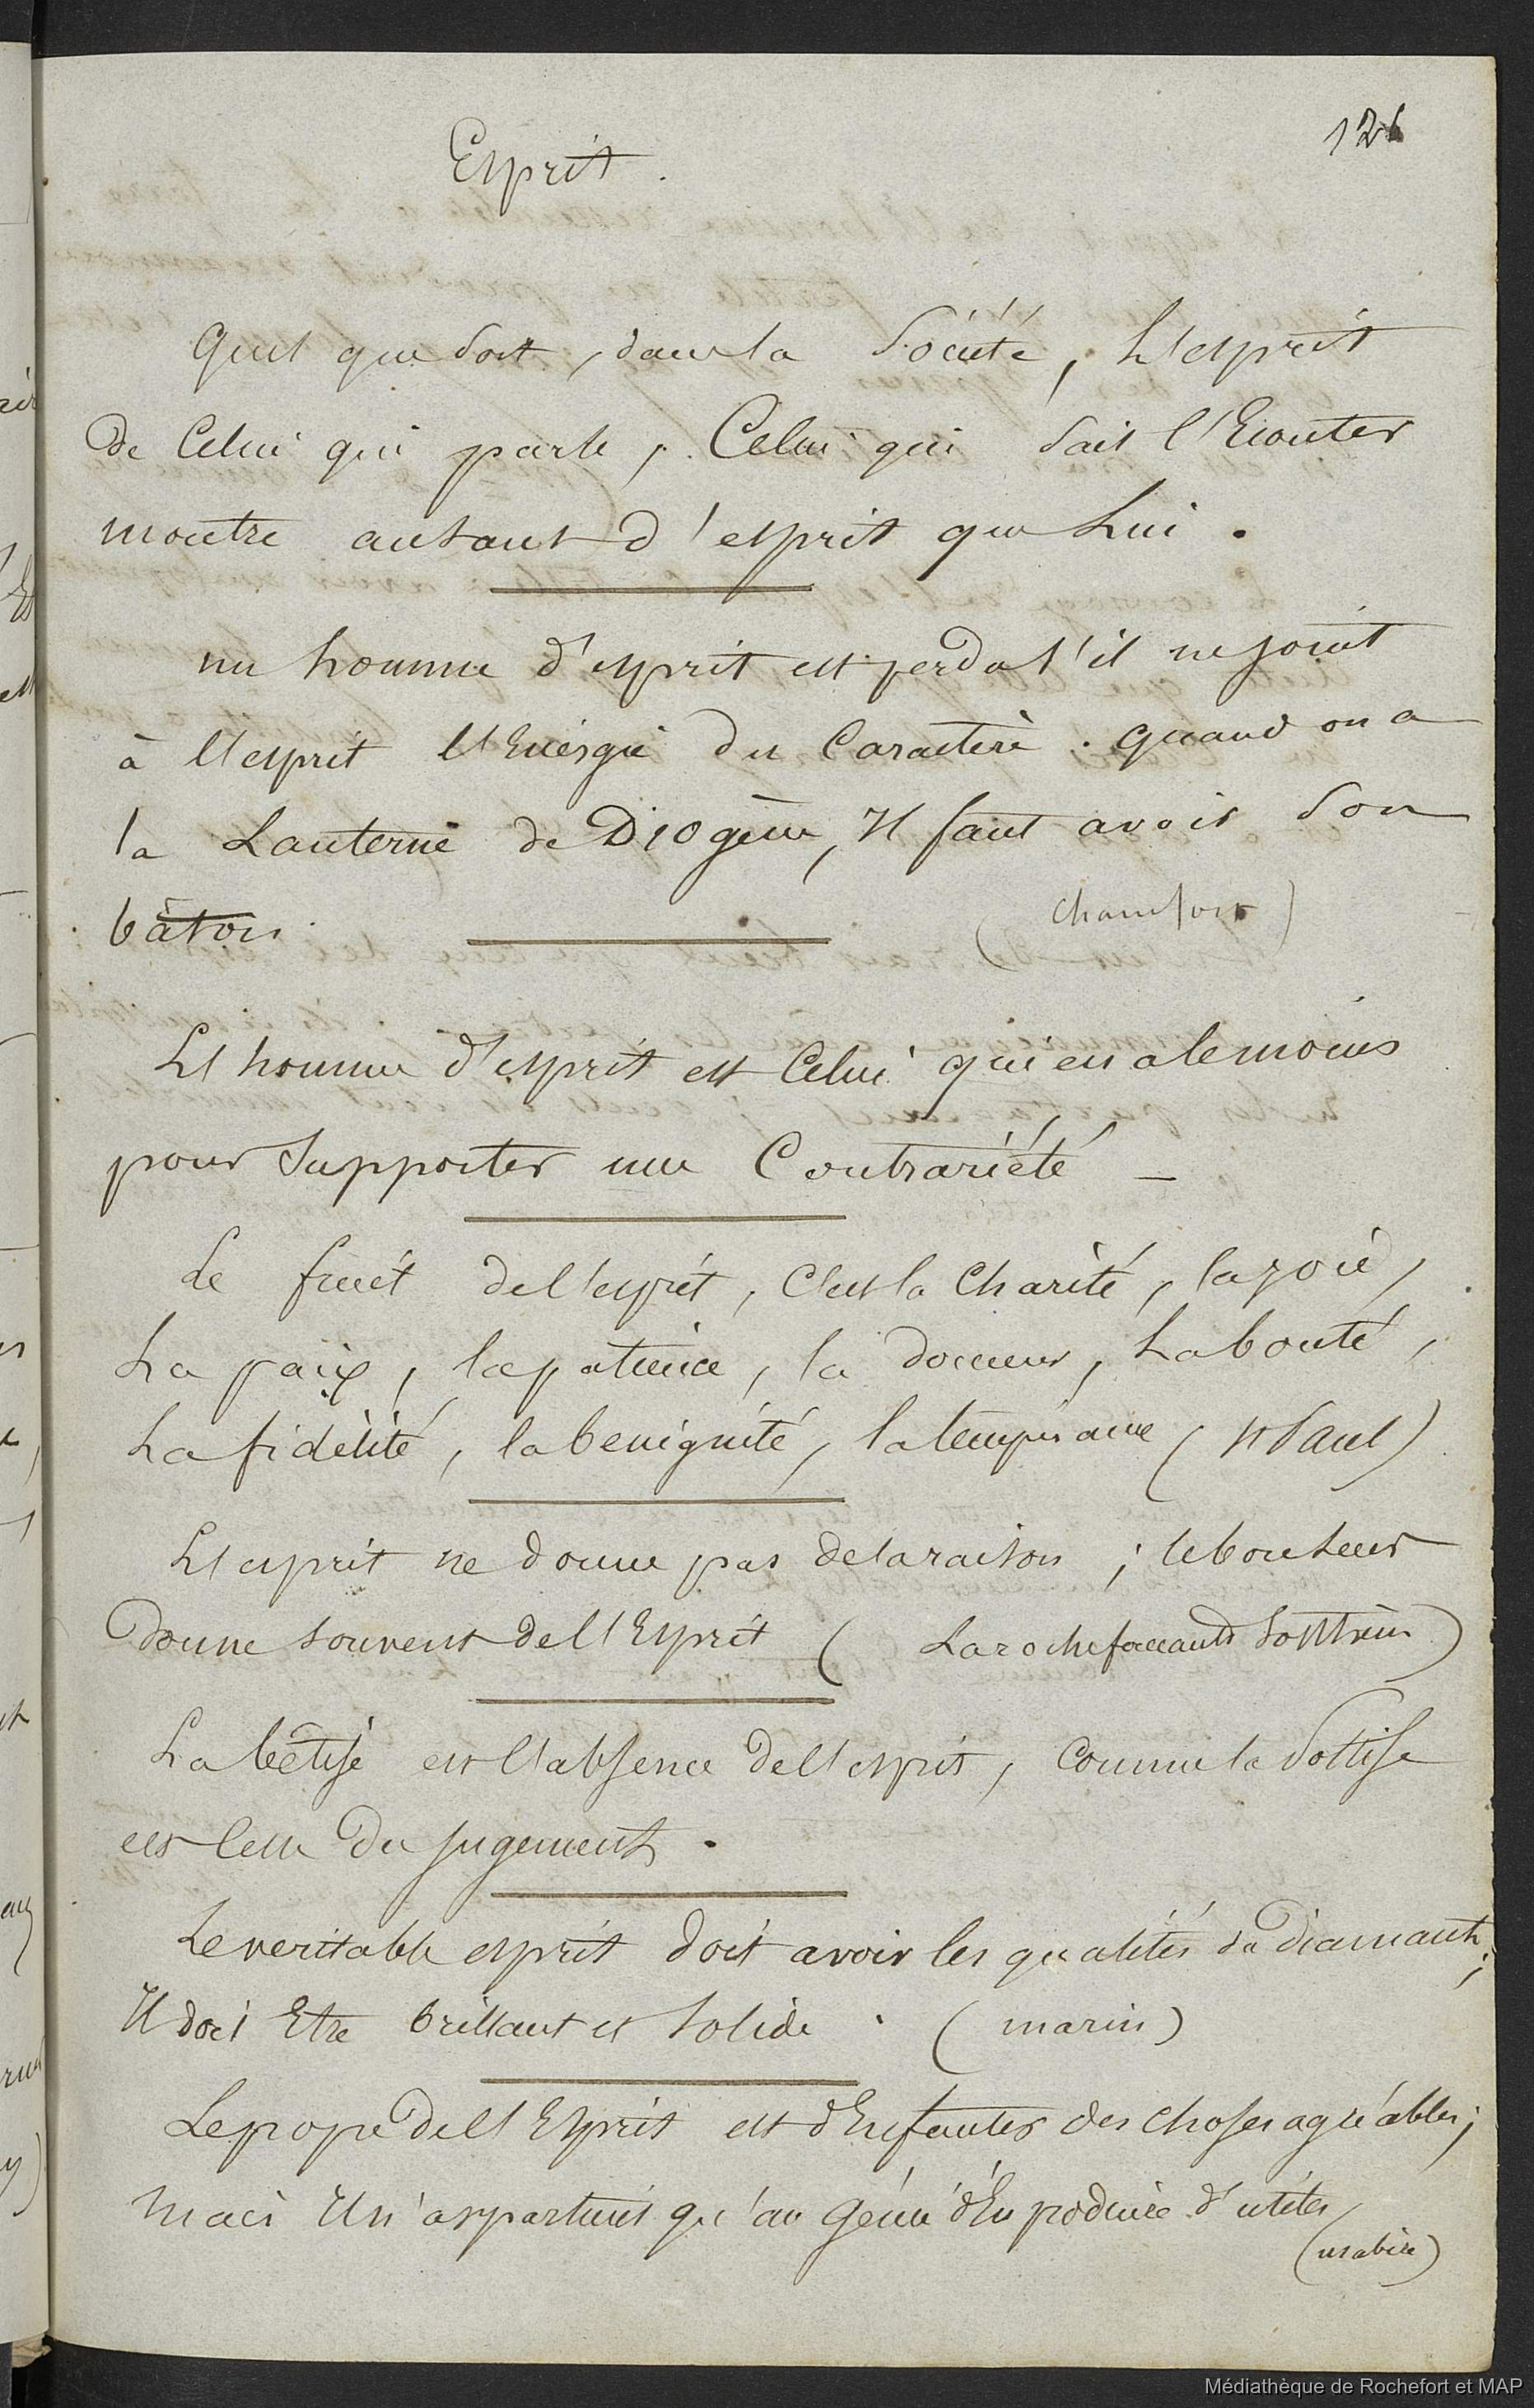 126
Esprit.
Quel que soit, dans la Société, L'esprit
de Celui qui parle, Celui qui sait l'Ecouter
montre autant d'esprit que Lui.
un homme d'esprit est perdu s'il ne joint
à l'esprit l'Energie du Caractère. quand on a
la Lanterne de Diogène, Il faut avoir son
bâton.
(chamfort)
L'homme d'esprit est Celui qui en a le moins
pour supporter une Contrariété —
Le fruit de l'esprit, C'est la Charité, la joie,
La paix, la patience, la douceur, La bonté,
La fidélité, la benignité, la tempérance (St Paul)
L'esprit ne donne pas de la raison ; le bonheur
donne souvent de l'Esprit ( Larochefoucauld )
La bêtise est l'absence de l'esprit, comme la Sottise
est Celle du jugement.
Le veritable esprit doit avoir les qualités du Diamant ;
Il doit Etre brillant et Solide. (marin)
Le propre de l'Esprit est d'Enfanter des choses agréables ;
mais Il n'appartient qu'au génie d'En produire d'utiles
Médiathèque de Rochefort et MAP